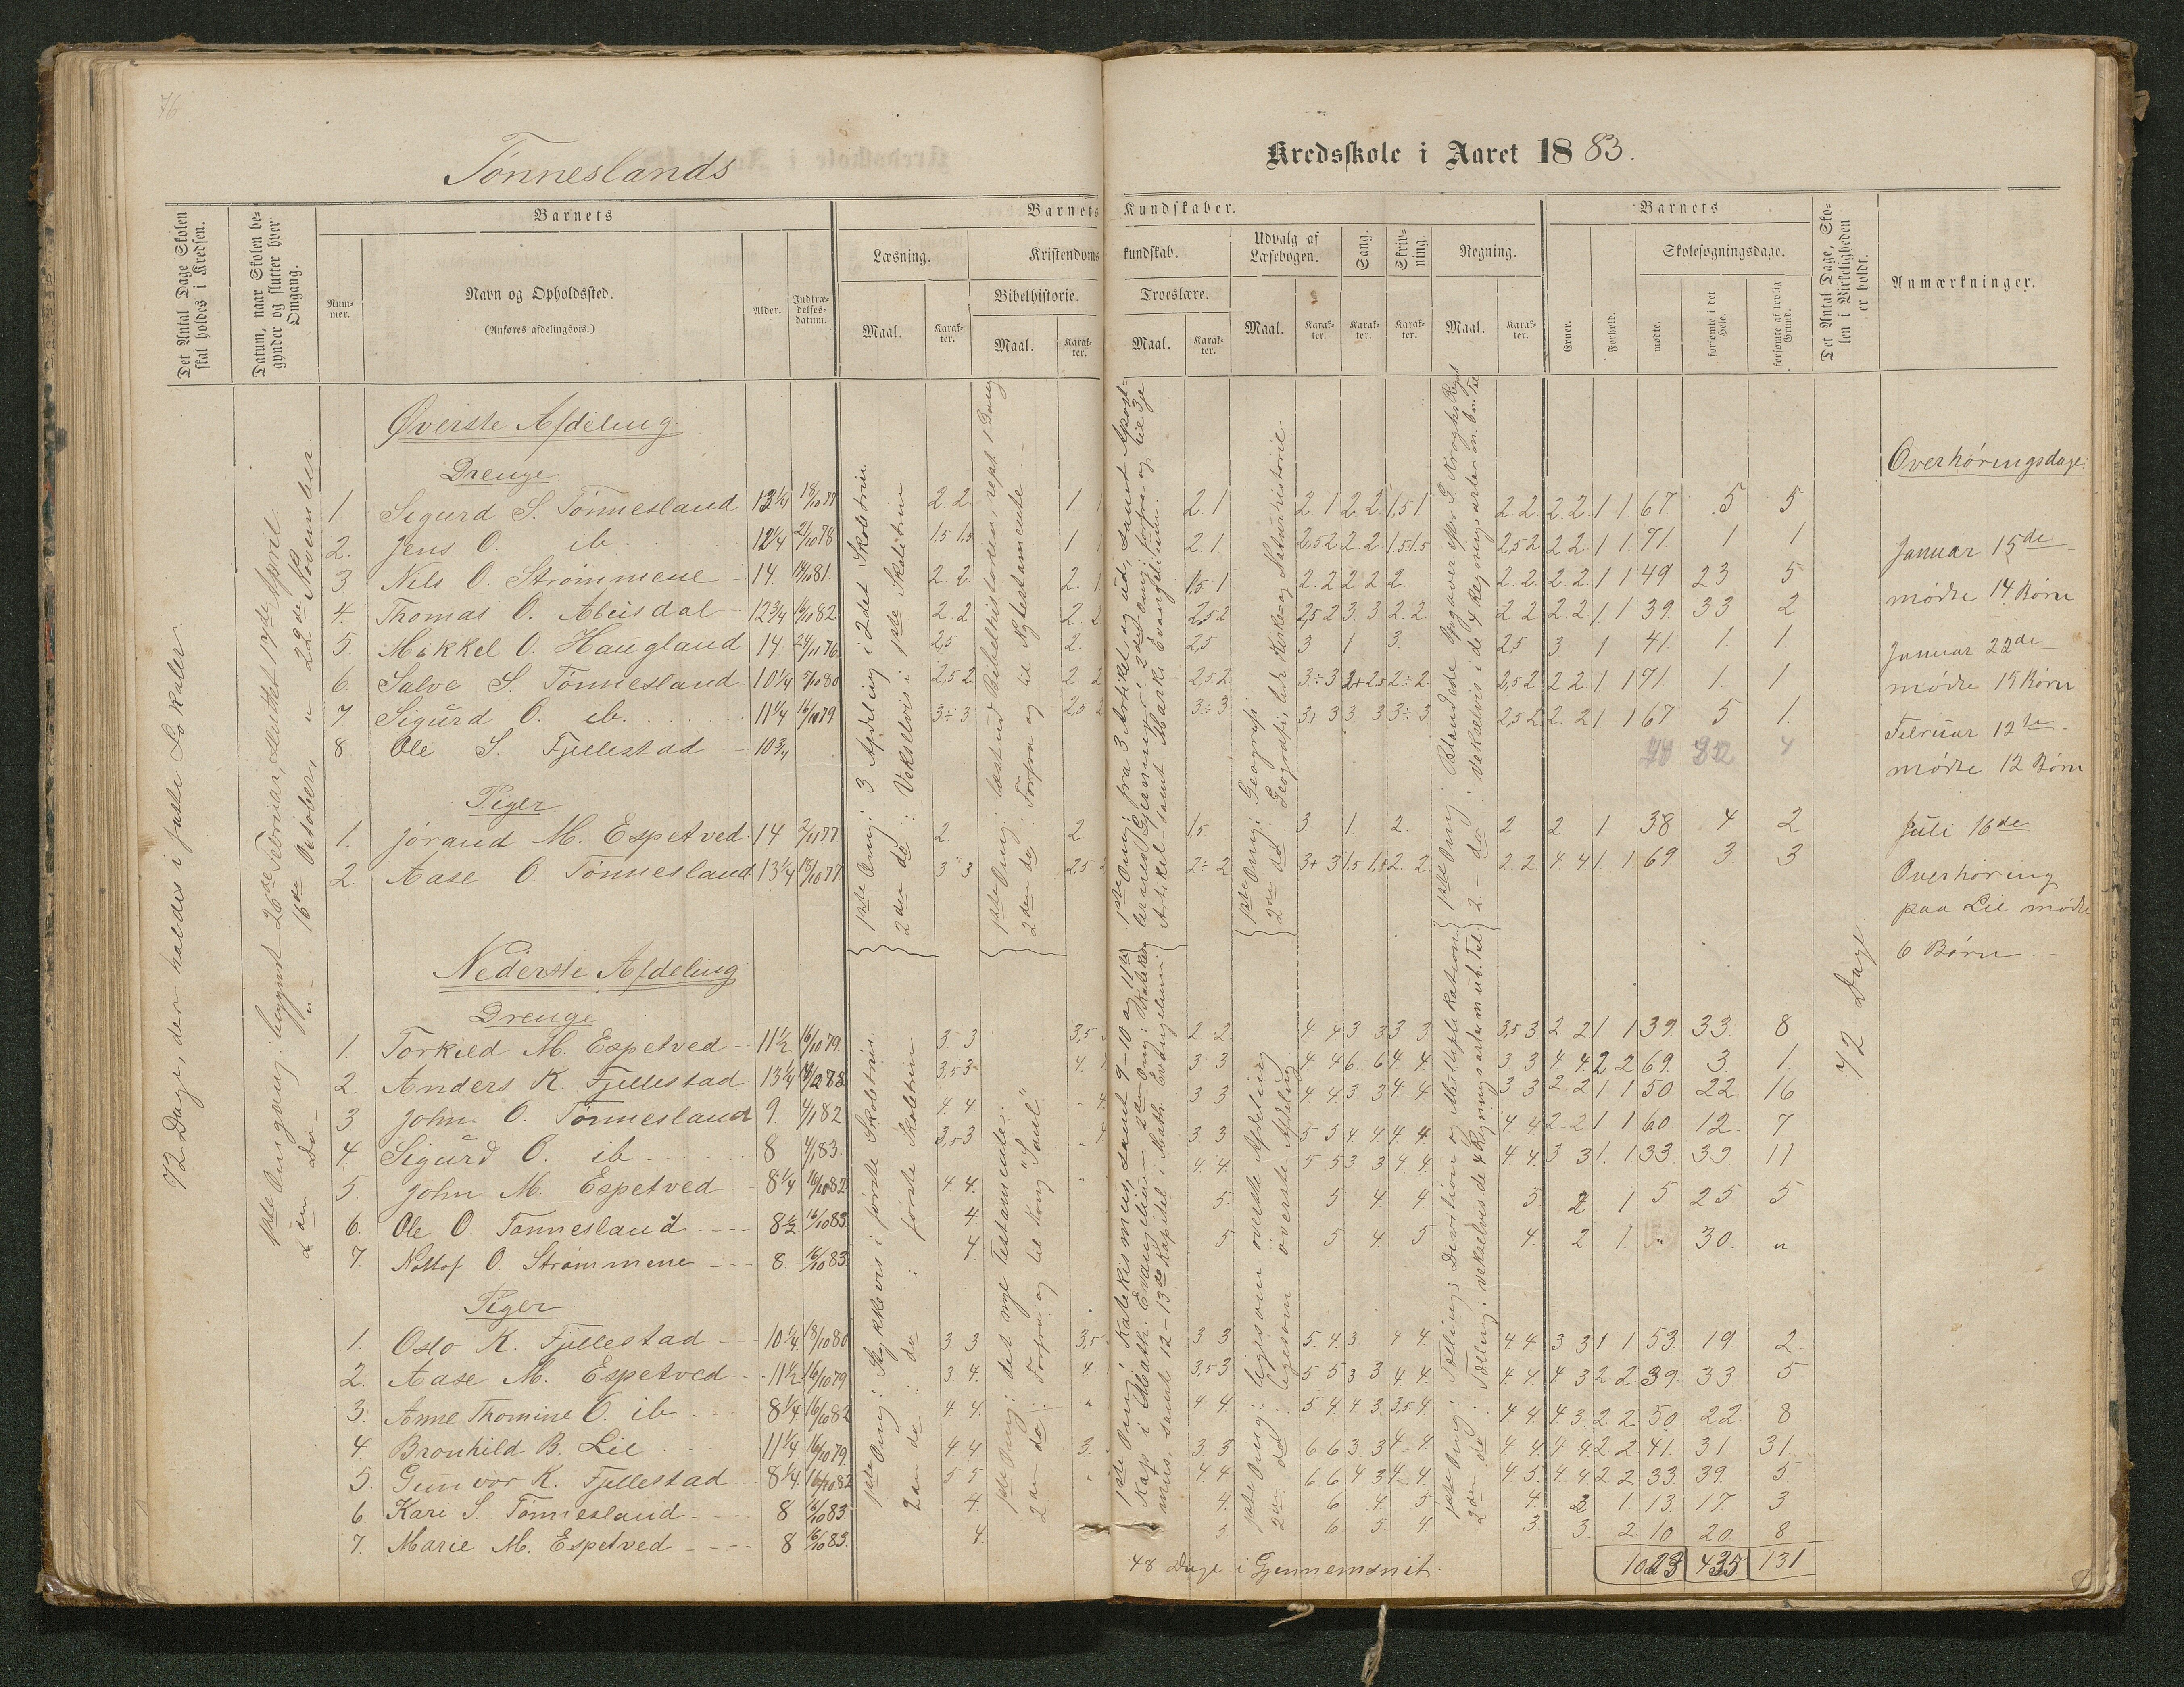 76
Tønneslands
Kredsskole i Aaret 1883.
Det Antal Dage Skolen skal holdes i Kredsen.
Datum, naar Skolen begynder og slutter hver Omgang.
Barnets
Nummer.
Navn og Opholdssted.
(Anføres afdelingsvis.)
Alder.
Indtrædelsesdatum.
Barnets Kundskaber.
Læsning.
Maal.
Karakter.
Kristendomskundskab.
Bibelhistorie.
Maal.
Karakter.
Troeslære.
Maal.
Karakter.
Udvalg af Læsebogen.
Maal.
Karakter.
Sang.
Karakter.
Skrivning.
Karakter.
Regning.
Maal.
Karakter.
Barnets
Evner.
Forhold.
Skolesøgningsdage.
mødte.
forsømte i det Hele.
forsømte af lovlig Grund.
Det Antal Dage, Skolen i Virkeligheden er holdt.
Anmærkninger.
72 Dage, der holdes i faste Lokaler.
1ste Omgang: begyndt 26de Februar, sluttet 17de April.
2den Do — " — 16de October, " 22de November
Øverste Afdeling.
Drenge.
1. Sigurd S. Tønnesland 13¼ 18/10 77 2. 2 1 2. 1 2. 1 2. 2 1,5 1 2. 2 2. 2 1 1. 67. 5 5
2. Jens O. ib. 12¼ 21/10 78 1,5 1,5 1 2. 1 2,5 2 2. 2 1,5 1,5 2,5 2 2 2 1 1. 71. 1 1
3 Nils O. Strømmene 14. 14/10 81. 2. 2. 2. 1 1,5 1 2. 2 2 2 2 2. 2 2. 2 1 1 49 23 5
4. Thomas O. Aleisdal 12¾ 16/10 82 2. 2 2. 2 2,5 2 2,5 2 3. 3 2. 2 2. 2 2 2 1. 1 39. 33 2
5. Mikkel O. Haugland 14. 24/11 76 2,5 2. 2,5 3 1 3. 2,5 3 1 41. 1. 1.
6 Salve S. Tønnesland 10¼ 5/10 80 2,5 2 2. 2 2,5 2 3÷ 3 2+ 2,5 2÷ 2 2,5 2 2 2 1. 1 71. 1. 1
7. Sigurd O. ib. 11¼ 16/10 79 3÷ 3 2,5 3÷ 3 3+ 3 3 3 3÷ 3 2,5 2 2. 2 1 1 67 5 1.
8. Ole S. Fjellestad 10¾ 4
Piger.
1. Jørand M. Espetved 14 2/11 77 2. 2. 1,5. 3. 1 2. 2 2. 1 38 4 2
2. Aase O. Tønnesland 13¼ 18/10 77 3. 3 2,5 2÷ 2 3+ 3 1,5 1,+ 2. 2 2. 2 4. 4 1. 1. 69. 3. 3
Nederste Afdeling
Drenge
1. Torkild M. Espetved 11½ 16/10 79. 3. 3 3,5 2 2. 4. 4 3 3 3 3. 3,5 3. 2. 2 1 1 39. 33. 8
2. Anders K. Fjellestad 13¼ 3,5 3 4. 3. 3 4. 4 6. 6 4. 4 3 3 4. 4. 2 2 69. 3. 1.
3. John O. Tønnesland 9. 4/1 82 4. 4 " 4 3 3 4. 4 3 3 4. 4 3 3 2. 2 1 1 50. 22. 16
4. Sigurd O. ib 8 4/1 83. 3,5 3 " 4. 3. 3 5 5 4. 4 4 4 4. 4 2. 2 1 1 60. 12. 7
5. John M. Espetved 8¼ 16/10 82 4. 4. " 4. 4 5 5 3. 3 4. 4. 4. 4. 3 3 1. 1 33. 39. 11
6. Ole O. Tønnesland 8½ 16/10 83. 4. 5. 5 4. 4 3. 2 1 5 25 5
7. Nottof O. Strømmene 8. 16/10 83. 4. 5 5 4 5 4. 2 1. " 30. "
Piger
1. Oslo K. Fjellestad 10¼ 18/10 80 3 3 3,5 3 3 5. 4. 3. 4 4. 4 4. 3 3 1 1. 53. 19. 2.
2. Aase M. Espetved 11½ 16/10 79 3. 4. 4 3,5 3 5 5 3 3 4 4. 4 4 4 3 2. 2. 39. 33. 5
3. Anne Thomine O. ib 8¼ 16/10 82 4 4. " 4 4 5 4. 4. 3. 3,5 4. 4 4. 4. 3 2 2. 50. 22. 8
4. Bronhild B. Lie 11¼ 16/10 79. 4 4. 3. 3 3 6. 6 3 3 4. 4 4. 4. 4 4 2. 2 41. 31. 31.
5. Gunvor K. Fjellestad 8¼ 16/10 82 5 5 " 4. 4. 6 6 4 3 4. 4 4. 5. 4. 4 2 2. 33. 39. 5.
6. Kari S. Tønnesland 8 16/10 83 4. 4. 6 4. 5 4. 2 1. 13. 17. 3
7. Marie M. Espetved 8 16/10 83. 4. 5 6. 5. 4 3 3. 2. 10. 20. 8
1023 435 131
48 Dage i Gjennemsnit.
1ste Omg: 3 Afdeling i 2det Skoletrin.
2den do : Vekselvis i 1ste Skoletrin
1ste Omg: læst ud Bibelhistorien, rept. 1 Gang
2den do: Forfra og til Nytestamente
1ste Omg: fra 3 Artikel og ud, samt Apostlernes Gjerninger. 2det Omg: forfra og til 3je Artikel — samt Marki Evangelium.
1ste Omg: Geografi
2den do. Geografi, lidt Kirke- og Naturhistorie.
1ste Omg: Blandede Opgaver efter G. Kroghs
2 — do: Vekselvis i de 4 Regningsarter
1ste Omg: Stykkevis i første Skoletrin.
2den do : do : første Skoletrin
1ste Omg: det nye Testamente.
2den do: Forfra og til Kong "Saul"
1ste Omg: Katekismus, samt 9–10 og 11te Kap. i Math. Evangelium 2de Omg: Katekismus, samt 12–13de Kapitel i Math. Evangelium
1ste Omg: ligesom øverste Afdeling
2den do : ligesom øverste Afdeling
1ste Omg: Tælling; Division og Multiplikation
2den do: Tælling: vekselvis de 4 Regningsarter m. ub. Tal
72 Dage
Overhøringsdage.
Januar 15de
mødte 14 Børn
Januar 22de
mødte 15 Børn
Februar 12te
mødte 12 Børn
Juli 16de
Overhøring
paa Lie mødte
6 Børn